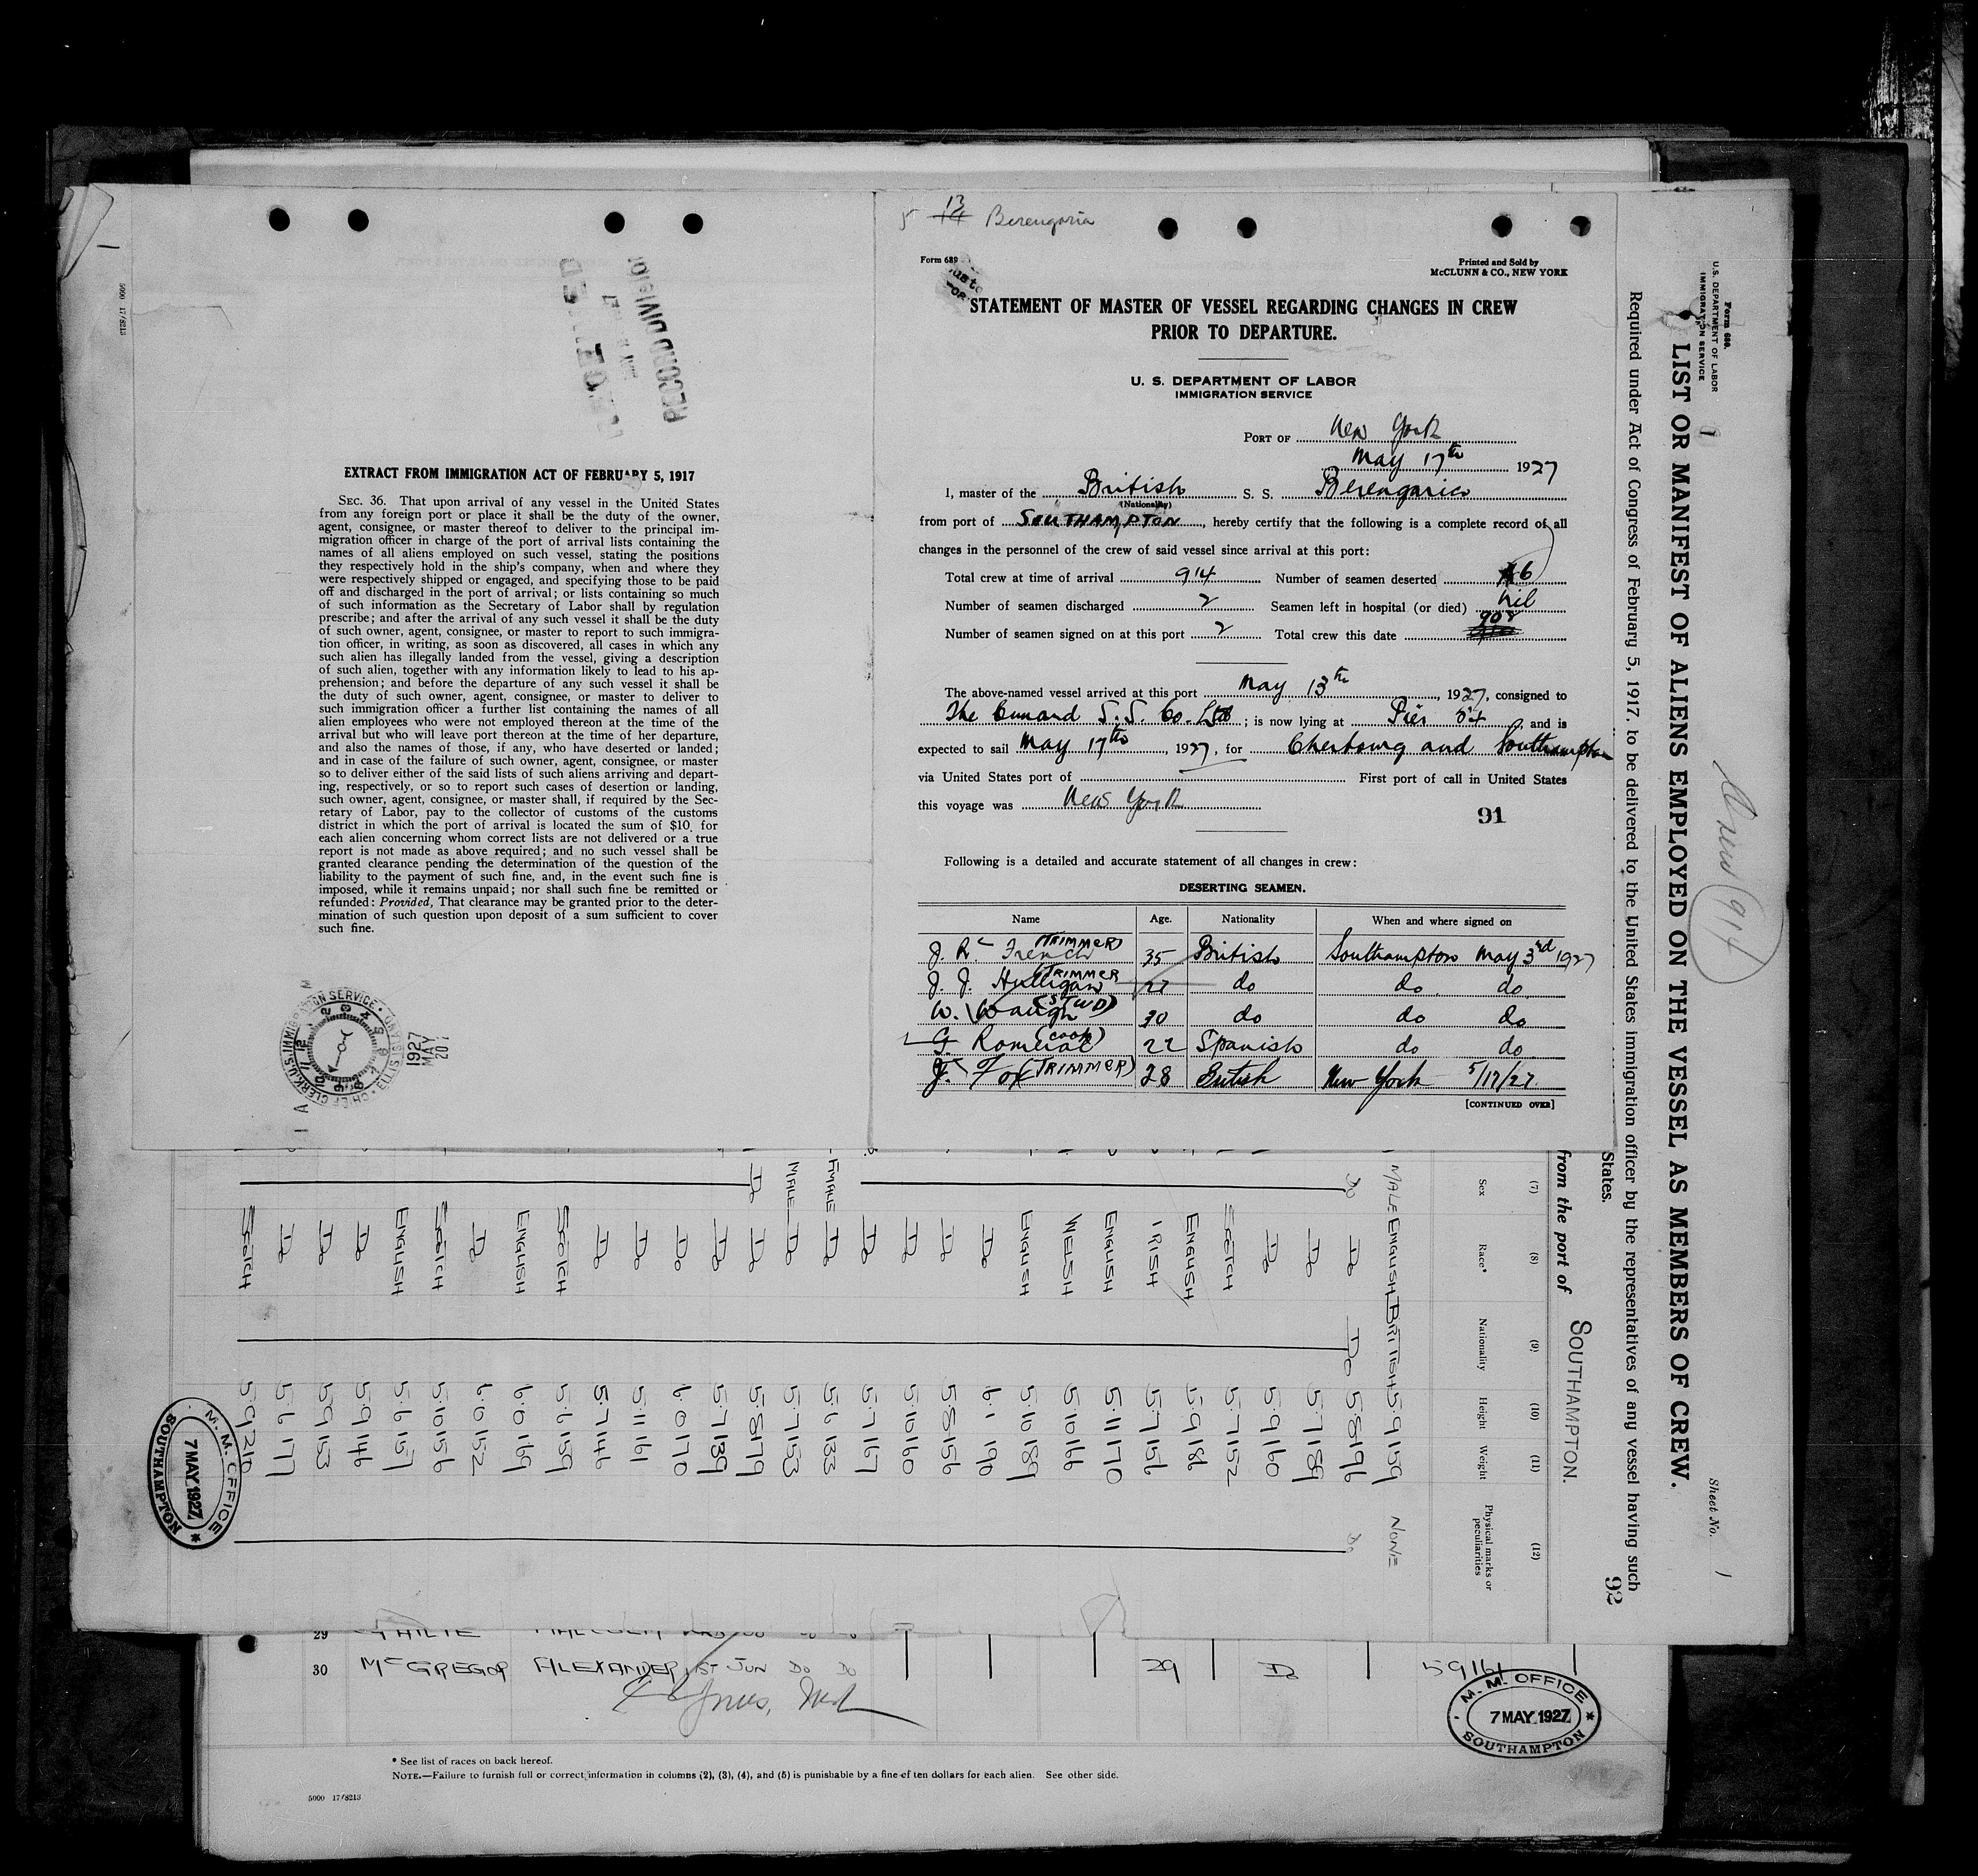 5 13 Berengaria
14
Form 689
Printed and Sold by
McCLUNN & CO., NEW YORK
STATEMENT OF MASTER OF VESSEL REGARDING CHANGES IN CREW
PRIOR TO DEPARTURE.
U. S. DEPARTMENT OF LABOR
IMMIGRATION SERVICE
PORT OF New York
May 17th 1927
I, master of the British S. S. Berengaria
(Nationality)
from port of SOUTHAMPTON, hereby certify that the following is a complete record of all
changes in the personnel of the crew of said vessel since arrival at this port:
Total crew at time of arrival 914 Number of seamen deserted 6
Number of seamen discharged 2 Seamen left in hospital (or died) Nil
Number of seamen signed on at this port 2 Total crew this date 908
The above-named vessel arrived at this port May 13th, 1927, consigned to
The Cunard S.S. Co. Ltd; is now lying at Pier 54, and is
expected to sail May 17th, 1927, for Cherbourg and Southampton
via United States port of First port of call in United States
this voyage was New York
91
Following is a detailed and accurate statement of all changes in crew:
DESERTING SEAMEN.
Name Age. Nationality When and where signed on
J. R. French (TRIMMER) 35 British Southampton May 3rd 1927
J. J. Hulligan (TRIMMER 27 do do do
W. Waugh (STWD) 30 do do do
G. Romerat (COOK) 22 Spanish do do
J. Fox (TRIMMER) 28 British New York 5/17/27
[CONTINUED OVER]
RECORD DIVISION
EXTRACT FROM IMMIGRATION ACT OF FEBRUARY 5, 1917
SEC. 36. That upon arrival of any vessel in the United States
from any foreign port or place it shall be the duty of the owner,
agent, consignee, or master thereof to deliver to the principal im-
migration officer in charge of the port of arrival lists containing the
names of all aliens employed on such vessel, stating the positions
they respectively hold in the ship's company, when and where they
were respectively shipped or engaged, and specifying those to be paid
off and discharged in the port of arrival; or lists containing so much
of such information as the Secretary of Labor shall by regulation
prescribe; and after the arrival of any such vessel it shall be the duty
of such owner, agent, consignee, or master to report to such immigra-
tion officer, in writing, as soon as discovered, all cases in which any
such alien has illegally landed from the vessel, giving a description
of such alien, together with any information likely to lead to his ap-
prehension; and before the departure of any such vessel it shall be
the duty of such owner, agent, consignee, or master to deliver to
such immigration officer a further list containing the names of all
alien employees who were not employed thereon at the time of the
arrival but who will leave port thereon at the time of her departure,
and also the names of those, if any, who have deserted or landed;
and in case of the failure of such owner, agent, consignee, or master
so to deliver either of the said lists of such aliens arriving and depart-
ing, respectively, or so to report such cases of desertion or landing,
such owner, agent, consignee, or master shall, if required by the Sec-
retary of Labor, pay to the collector of customs of the customs
district in which the port of arrival is located the sum of $10 for
each alien concerning whom correct lists are not delivered or a true
report is not made as above required; and no such vessel shall be
granted clearance pending the determination of the question of the
liability to the payment of such fine, and, in the event such fine is
imposed, while it remains unpaid; nor shall such fine be remitted or
refunded: Provided, That clearance may be granted prior to the deter-
mination of such question upon deposit of a sum sufficient to cover
such fine.
1927
MAY
20
Form 680.
U.S. DEPARTMENT OF LABOR
IMMIGRATION SERVICE
Sheet No. 1
LIST OR MANIFEST OF ALIENS EMPLOYED ON THE VESSEL AS MEMBERS OF CREW.
Required under Act of Congress of February 5, 1917, to be delivered to the United States immigration officer by the representatives of any vessel having such
States.
92
from the port of SOUTHAMPTON.
914
(7) (8) (9) (10) (11) (12)
Sex Race* Nationality Height Weight Physical marks or peculiarities
MALE ENGLISH BRITISH 5.9 159 NONE
Do Do Do 5.8 196 Do
Do 5.7 189
Do 5.9 160
SCOTCH 5.7 152
ENGLISH 5.9 186
IRISH 5.7 156
ENGLISH 5.11 170
WELSH 5.10 166
ENGLISH 5.10 189
Do 6.1 190
Do 5.8 156
Do 5.10 160
Do 5.7 167
FMALE Do 5.6 133
MALE Do 5.7 153
Do Do 5.8 179
Do 5.7 139
Do 6.0 170
Do 5.11 161
Do 5.7 146
SCOTCH 5.6 159
ENGLISH 6.0 169
Do 6.0 152
SCOTCH 5.10 156
ENGLISH 5.6 157
Do 5.9 146
Do 5.9 153
Do 5.6 177
SCOTCH 5.9 210
M. M. OFFICE
7 MAY 1927
SOUTHAMPTON
5000 17/8213
29
30 McGREGOR ALEXANDER 1ST JUN Do Do 29 Do 5 9 161
M. M. OFFICE
7 MAY 1927
SOUTHAMPTON
* See list of races on back hereof.
NOTE.—Failure to furnish full or correct information in columns (2), (3), (4), and (5) is punishable by a fine of ten dollars for each alien. See other side.
5000 17/8213